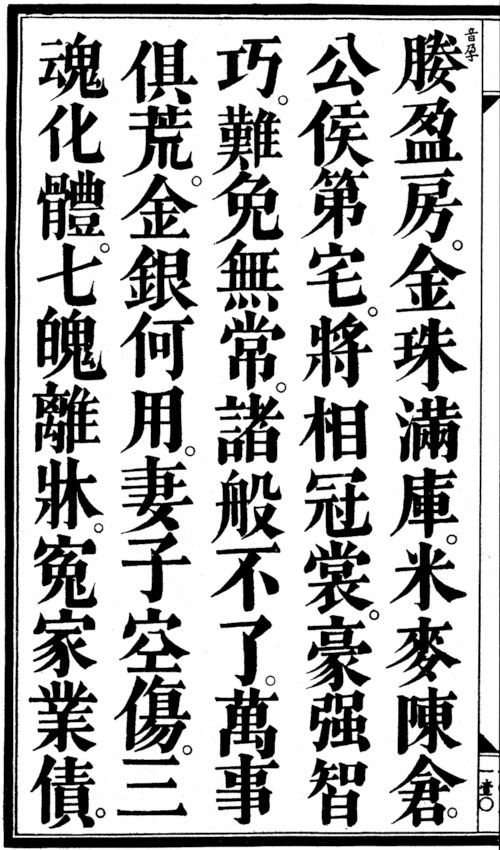 音孕
媵盈房。金珠滿庫。米麥陳倉。
公侯第宅。將相冠裳。豪强智
巧。難免無常。諸般不了。萬事
俱荒。金銀何用。妻子空傷。三
魂化體。七魄離牀。寃家業債。